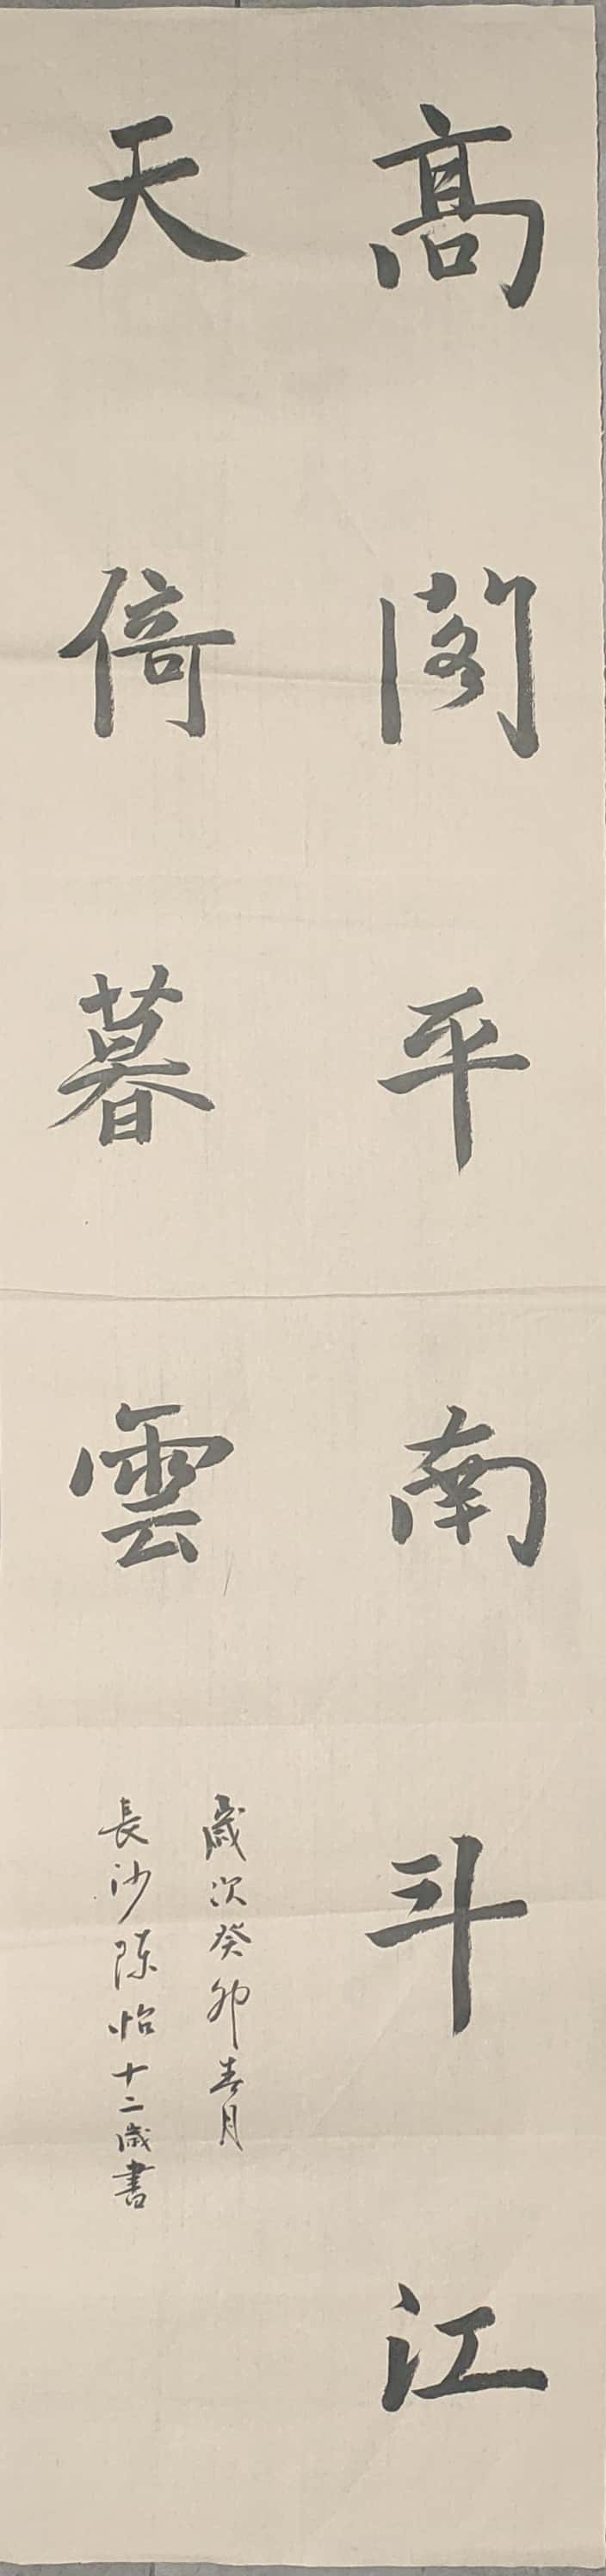 高閣平南斗江
天倚暮雲
歲次癸卯春月
長沙陈怡十二歲書